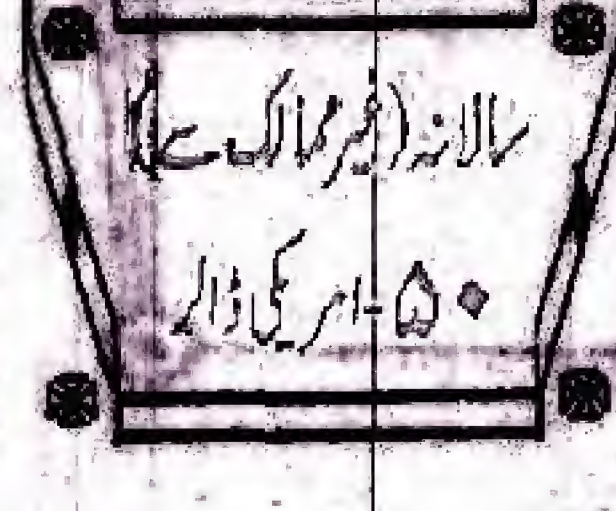 سالانہ (غیر ممالک سے)
۵۰-امریکی ڈالر